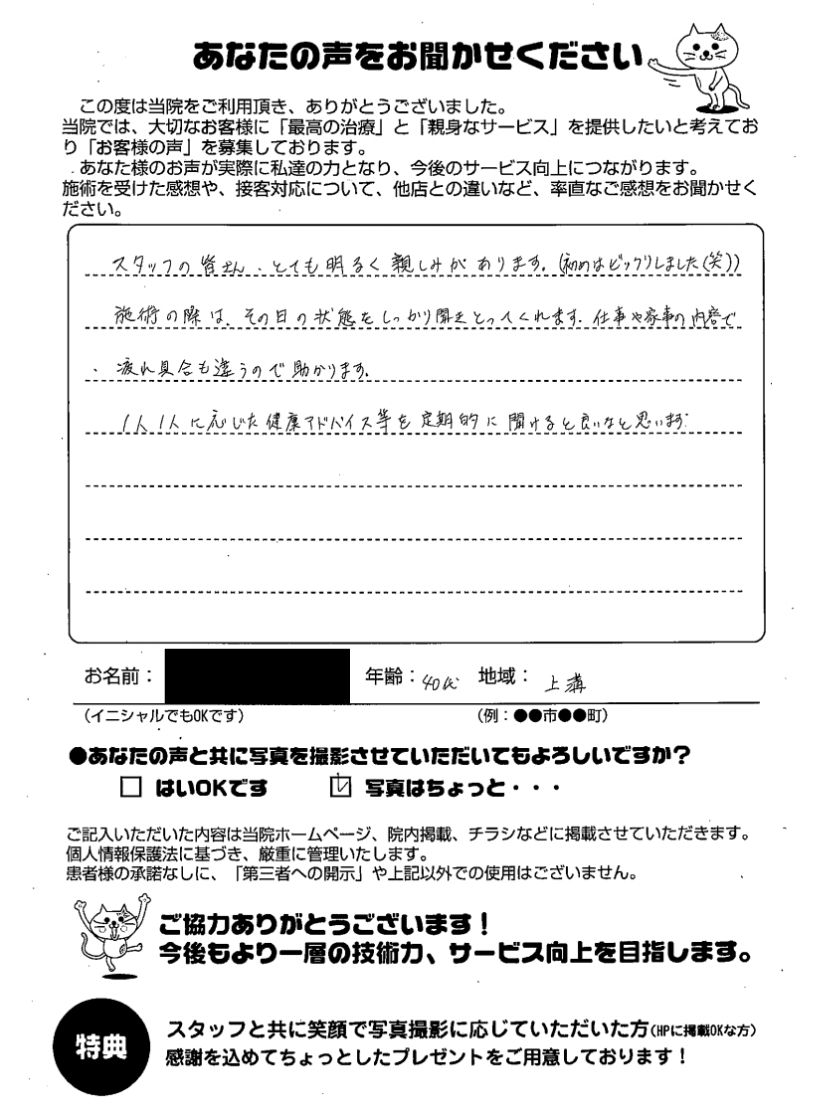 あなたの声をお聞かせください
この度は当院をご利用頂き、ありがとうございました。
当院では、大切なお客様に「最高の治療」と「親身なサービス」を提供したいと考えてお
り「お客様の声」を募集しております。
あなた様のお声が実際に私達の力となり、今後のサービス向上につながります。
施術を受けた感想や、接客対応について、他店との違いなど、率直なご感想をお聞かせく
ださい。
スタッフの皆さん、とても明るく親しみがあります。(初めはビックリしました(笑))
施術の際は、その日の状態をしっかり聞きとってくれます。仕事や家事の内容で
疲れ具合も違うので助かります。
1人1人に応じた健康アドバイス等を定期的に聞けると良いなと思います。
お名前： 年齢：40代 地域：上溝
(イニシャルでもOKです) (例：●●市●●町)
●あなたの声と共に写真を撮影させていただいてもよろしいですか？
□ はいOKです ☑ 写真はちょっと・・・
ご記入いただいた内容は当院ホームページ、院内掲載、チラシなどに掲載させていただきます。
個人情報保護法に基づき、厳重に管理いたします。
患者様の承諾なしに、「第三者への開示」や上記以外での使用はございません。
ご協力ありがとうございます！
今後もより一層の技術力、サービス向上を目指します。
特典
スタッフと共に笑顔で写真撮影に応じていただいた方(HPに掲載OKな方)
感謝を込めてちょっとしたプレゼントをご用意しております！